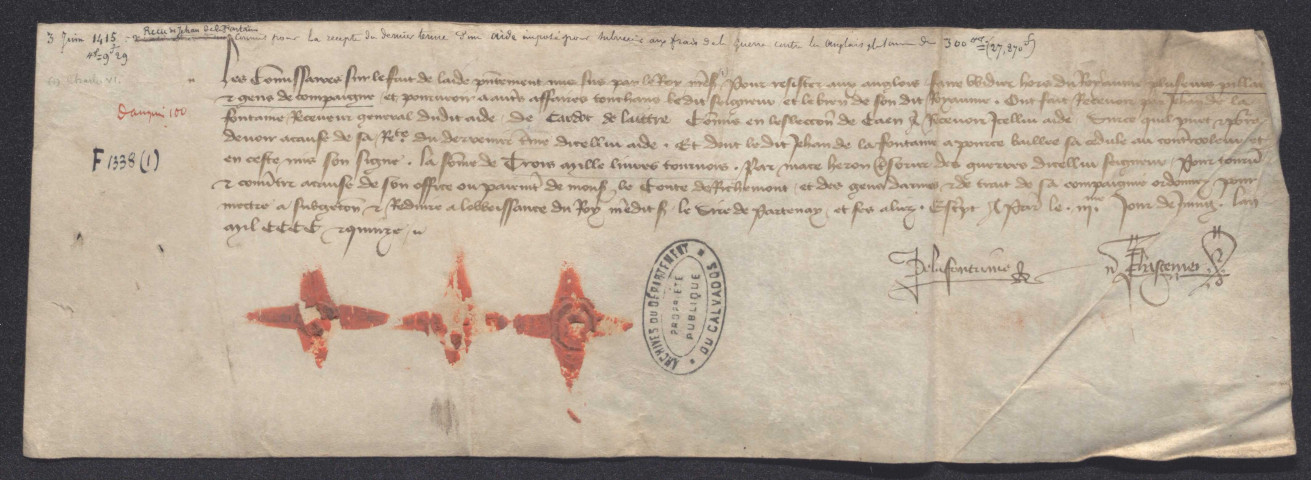 3 Juin 1415 - Reçu de Jehan de la Fontaine pour la recepte du dernier terme d'un aide imposé pour subvenir aux frais de la guerre contre les anglais 300 (27,870 f)
Charles VI.
Danquin 100
F 1338 (1)
Les Commissaires sur le fait de laide pñtement mis sus par le Roy ñrẽ sʳ. Pour resister aux anglois faire widier hors du Royaume plusieurs pillars
et gens de compaigne et pourveoir a autrẽs affaires touchans ledit seigneur et le bien de son dit Royaume. Ont fait Recevoir par Jehan de la
Fontaine Receveur general dudit aide de Cardot de laittre Cõmis en lesleccõn de Caen a Recevoir Icellui aide
devoir a cause de sa Rẽpte du derrenier tẽme dicellui aide. Et dont ledit Jehan de la Fontaine a pour ce baillee sa cedule au contreroleur et
en ceste mis son signe. la sõme de Trois mille livres tournois. Par mace heron tresorier des guerres dicellui seigneur Pour tournẽ
et cõvertir a cause de son office ou paiemẽt de mons. le Conte de Richemont et des gens darmes et de trait de sa compaignie ordonnez pour
mettre a subgeccõn et Redure a lobeissance du Roy ñrẽdit sʳ. le sire de Partenay et ses aliez. Escript a Paris le iiiᵐᵉ Jour de Juing lan
mil CCCC et quinze
Delafontaine
ARCHIVES DU DÉPARTEMENT DU CALVADOS
PROPRIÉTÉ
PUBLIQUE